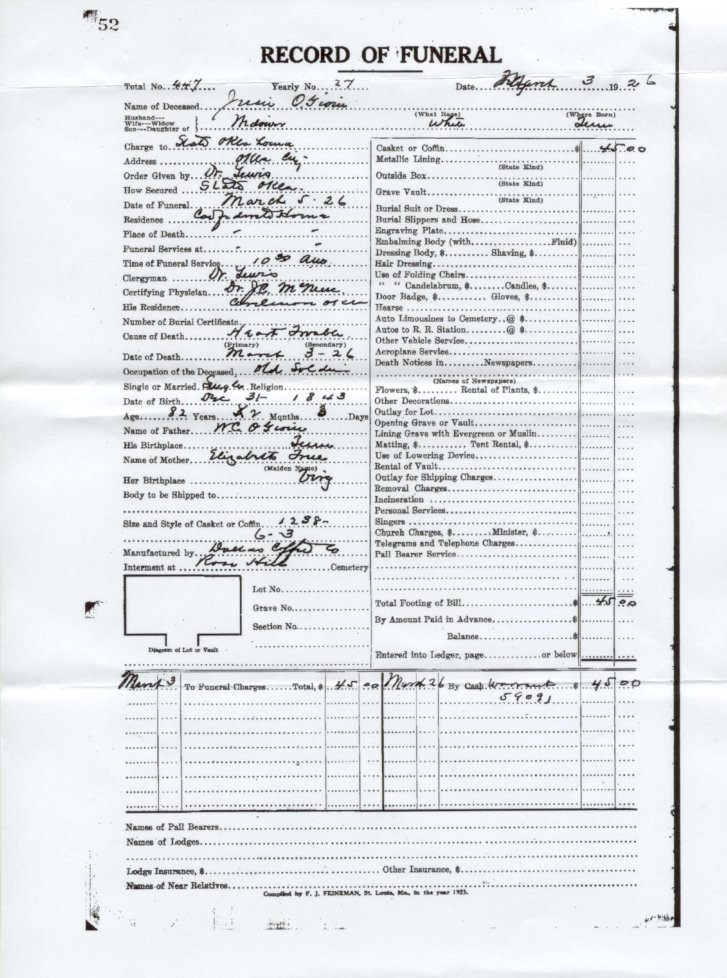 52
RECORD OF FUNERAL
Total No. 447 Yearly No. 27 Date March 3 1926
Name of Deceased
Husband---
Wife---Widow
Son---Daughter of
Widower
(What Race)
White
(Where Born)
Charge to State Oklahoma
Address Okla City
Order Given by Dr. Lewis
How Secured State Okla.
Date of Funeral March 5-26
Residence Confederate Home
Place of Death " "
Funeral Services at
Time of Funeral Service 10 30 am
Clergyman Dr Lewis
Certifying Physician Dr. J.C. McNeese
His Residence
Number of Burial Certificate
Cause of Death Heart Trouble
(Primary) (Secondary)
Date of Death March 3-26
Occupation of the Deceased Old Soldier
Single or Married Religion
Date of Birth Dec 31- 1843
Age 82 Years Months Days
Name of Father W.C.
His Birthplace
Name of Mother Elizabeth
(Maiden Name)
Her Birthplace Virg
Body to be Shipped to
Size and Style of Casket or Coffin 1238-
6-3
Manufactured by Dallas Coffin Co
Interment at Rose Hill Cemetery
Lot No.
Grave No.
Section No.
Diagram of Lot or Vault
Casket or Coffin $ 45.00
Metallic Lining
(State Kind)
Outside Box
(State Kind)
Grave Vault
(State Kind)
Burial Suit or Dress
Burial Slippers and Hose
Engraving Plate
Embalming Body (with Fluid)
Dressing Body, $ Shaving, $
Hair Dressing
Use of Folding Chairs
" " Candelabrum, $ Candles, $
Door Badge, $ Gloves, $
Hearse
Auto Limousines to Cemetery @ $
Autos to R. R. Station @ $
Other Vehicle Service
Aeroplane Service
Death Notices in Newspapers
(Names of Newspapers)
Flowers, $ Rental of Plants, $
Other Decorations
Outlay for Lot
Opening Grave or Vault
Lining Grave with Evergreen or Muslin
Matting, $ Tent Rental, $
Use of Lowering Device
Rental of Vault
Outlay for Shipping Charges
Removal Charges
Incineration
Personal Services
Singers
Church Charges, $ Minister, $
Telegrams and Telephone Charges
Pall Bearer Service
Total Footing of Bill $ 45 00
By Amount Paid in Advance $
Balance $
Entered into Ledger, page or below
March 3 To Funeral Charges Total, $ 45 00 March 26 By Cash Warrant $ 45 00
59091
Names of Pall Bearers
Names of Lodges
Lodge Insurance, $ Other Insurance, $
Names of Near Relatives
Compiled by F. J. FEINEMAN, St. Louis, Mo., in the year 1925.